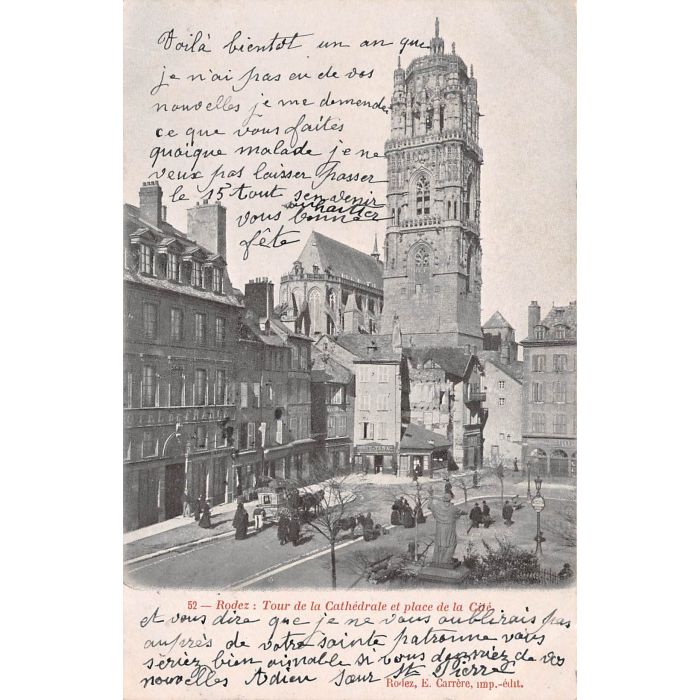 Voilà bientot un an que
je n'ai pas eu de vos
nouvelles je me demende
ce que vous faites
quoique malade je ne
veux pas laisser passer
le 15 tout sen venir
vous souhaitter bonne
fête
TABAC
52 — Rodez : Tour de la Cathédrale et place de la Cité
et vous dire que je ne vous aublirais pas
auprés de votre sainte patronne vous
sériez bien aimable si vous donniez de vos
nouvelles Adieu sœur St Pierre
Rodez, E. Carrère, imp.-édit.